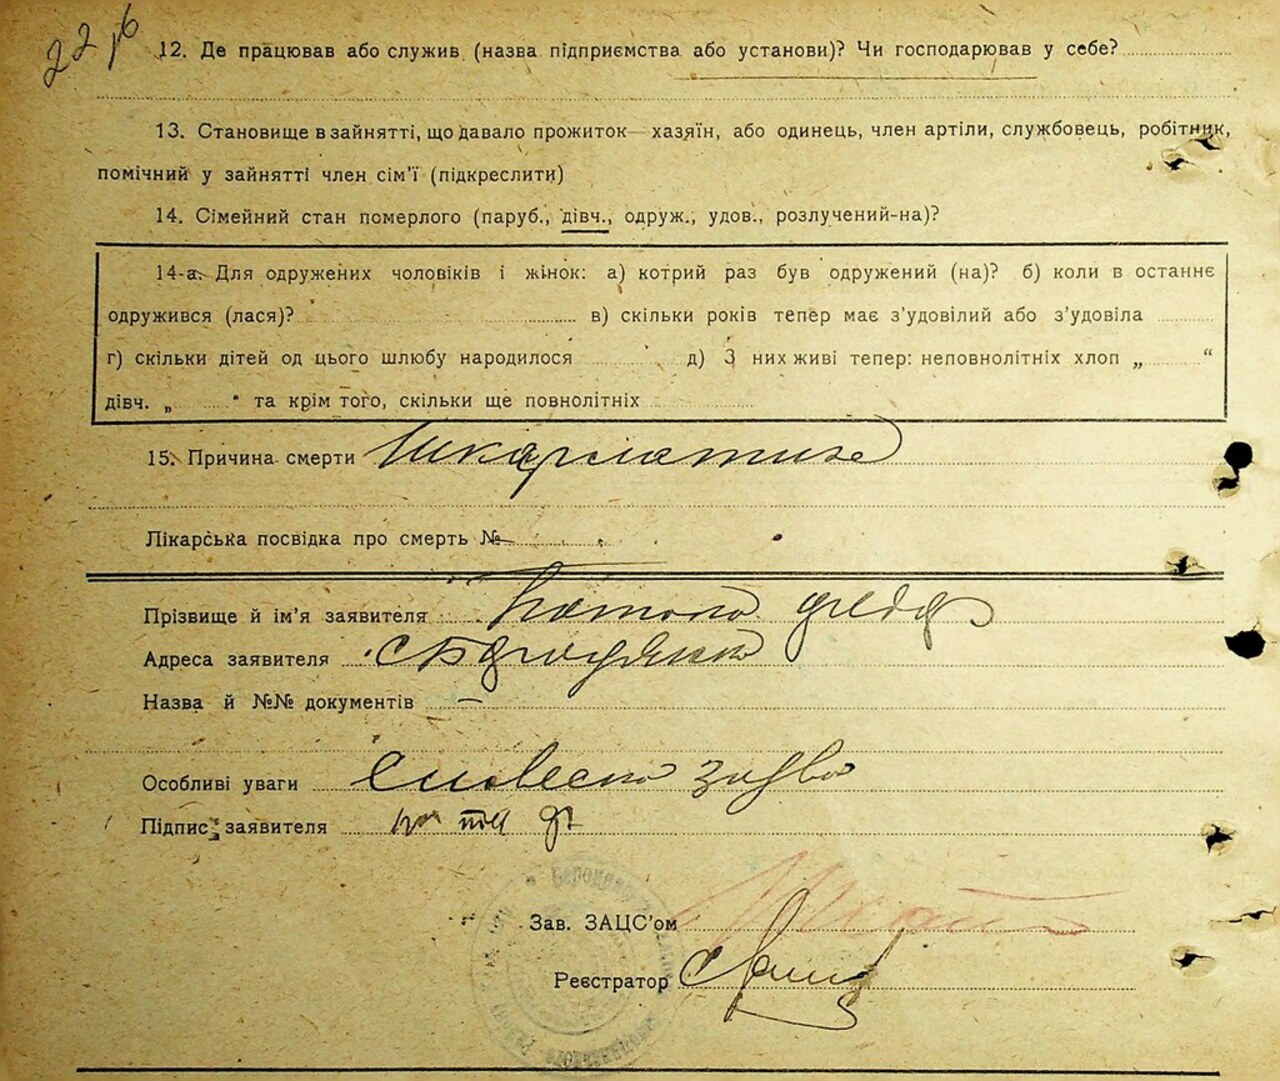 22/б
12. Де працював або служив (назва підприємства або установи)? Чи господарював у себе?
13. Становище в зайнятті, що давало прожиток — хазяїн, або одинець, член артіли, службовець, робітник,
помічний у зайнятті член сім'ї (підкреслити)
14. Сімейний стан померлого (паруб., дівч., одруж., удов., розлучений-на)?
14-а. Для одружених чоловіків і жінок: а) котрий раз був одружений (на)? б) коли в останнє
одружився (лася)? в) скільки років тепер має з'удовілий або з'удовіла
г) скільки дітей од цього шлюбу народилося д) З них живі тепер: неповнолітніх хлоп „ “
дівч. „ “ та крім того, скільки ще повнолітніх
15. Причина смерти Шкарлатина
Лікарська посвідка про смерть №
Прізвище й ім'я заявителя
Адреса заявителя с
Назва й №№ документів —
Особливі уваги Словесна заява
Підпис заявителя
Зав. ЗАЦС'ом
Реєстратор